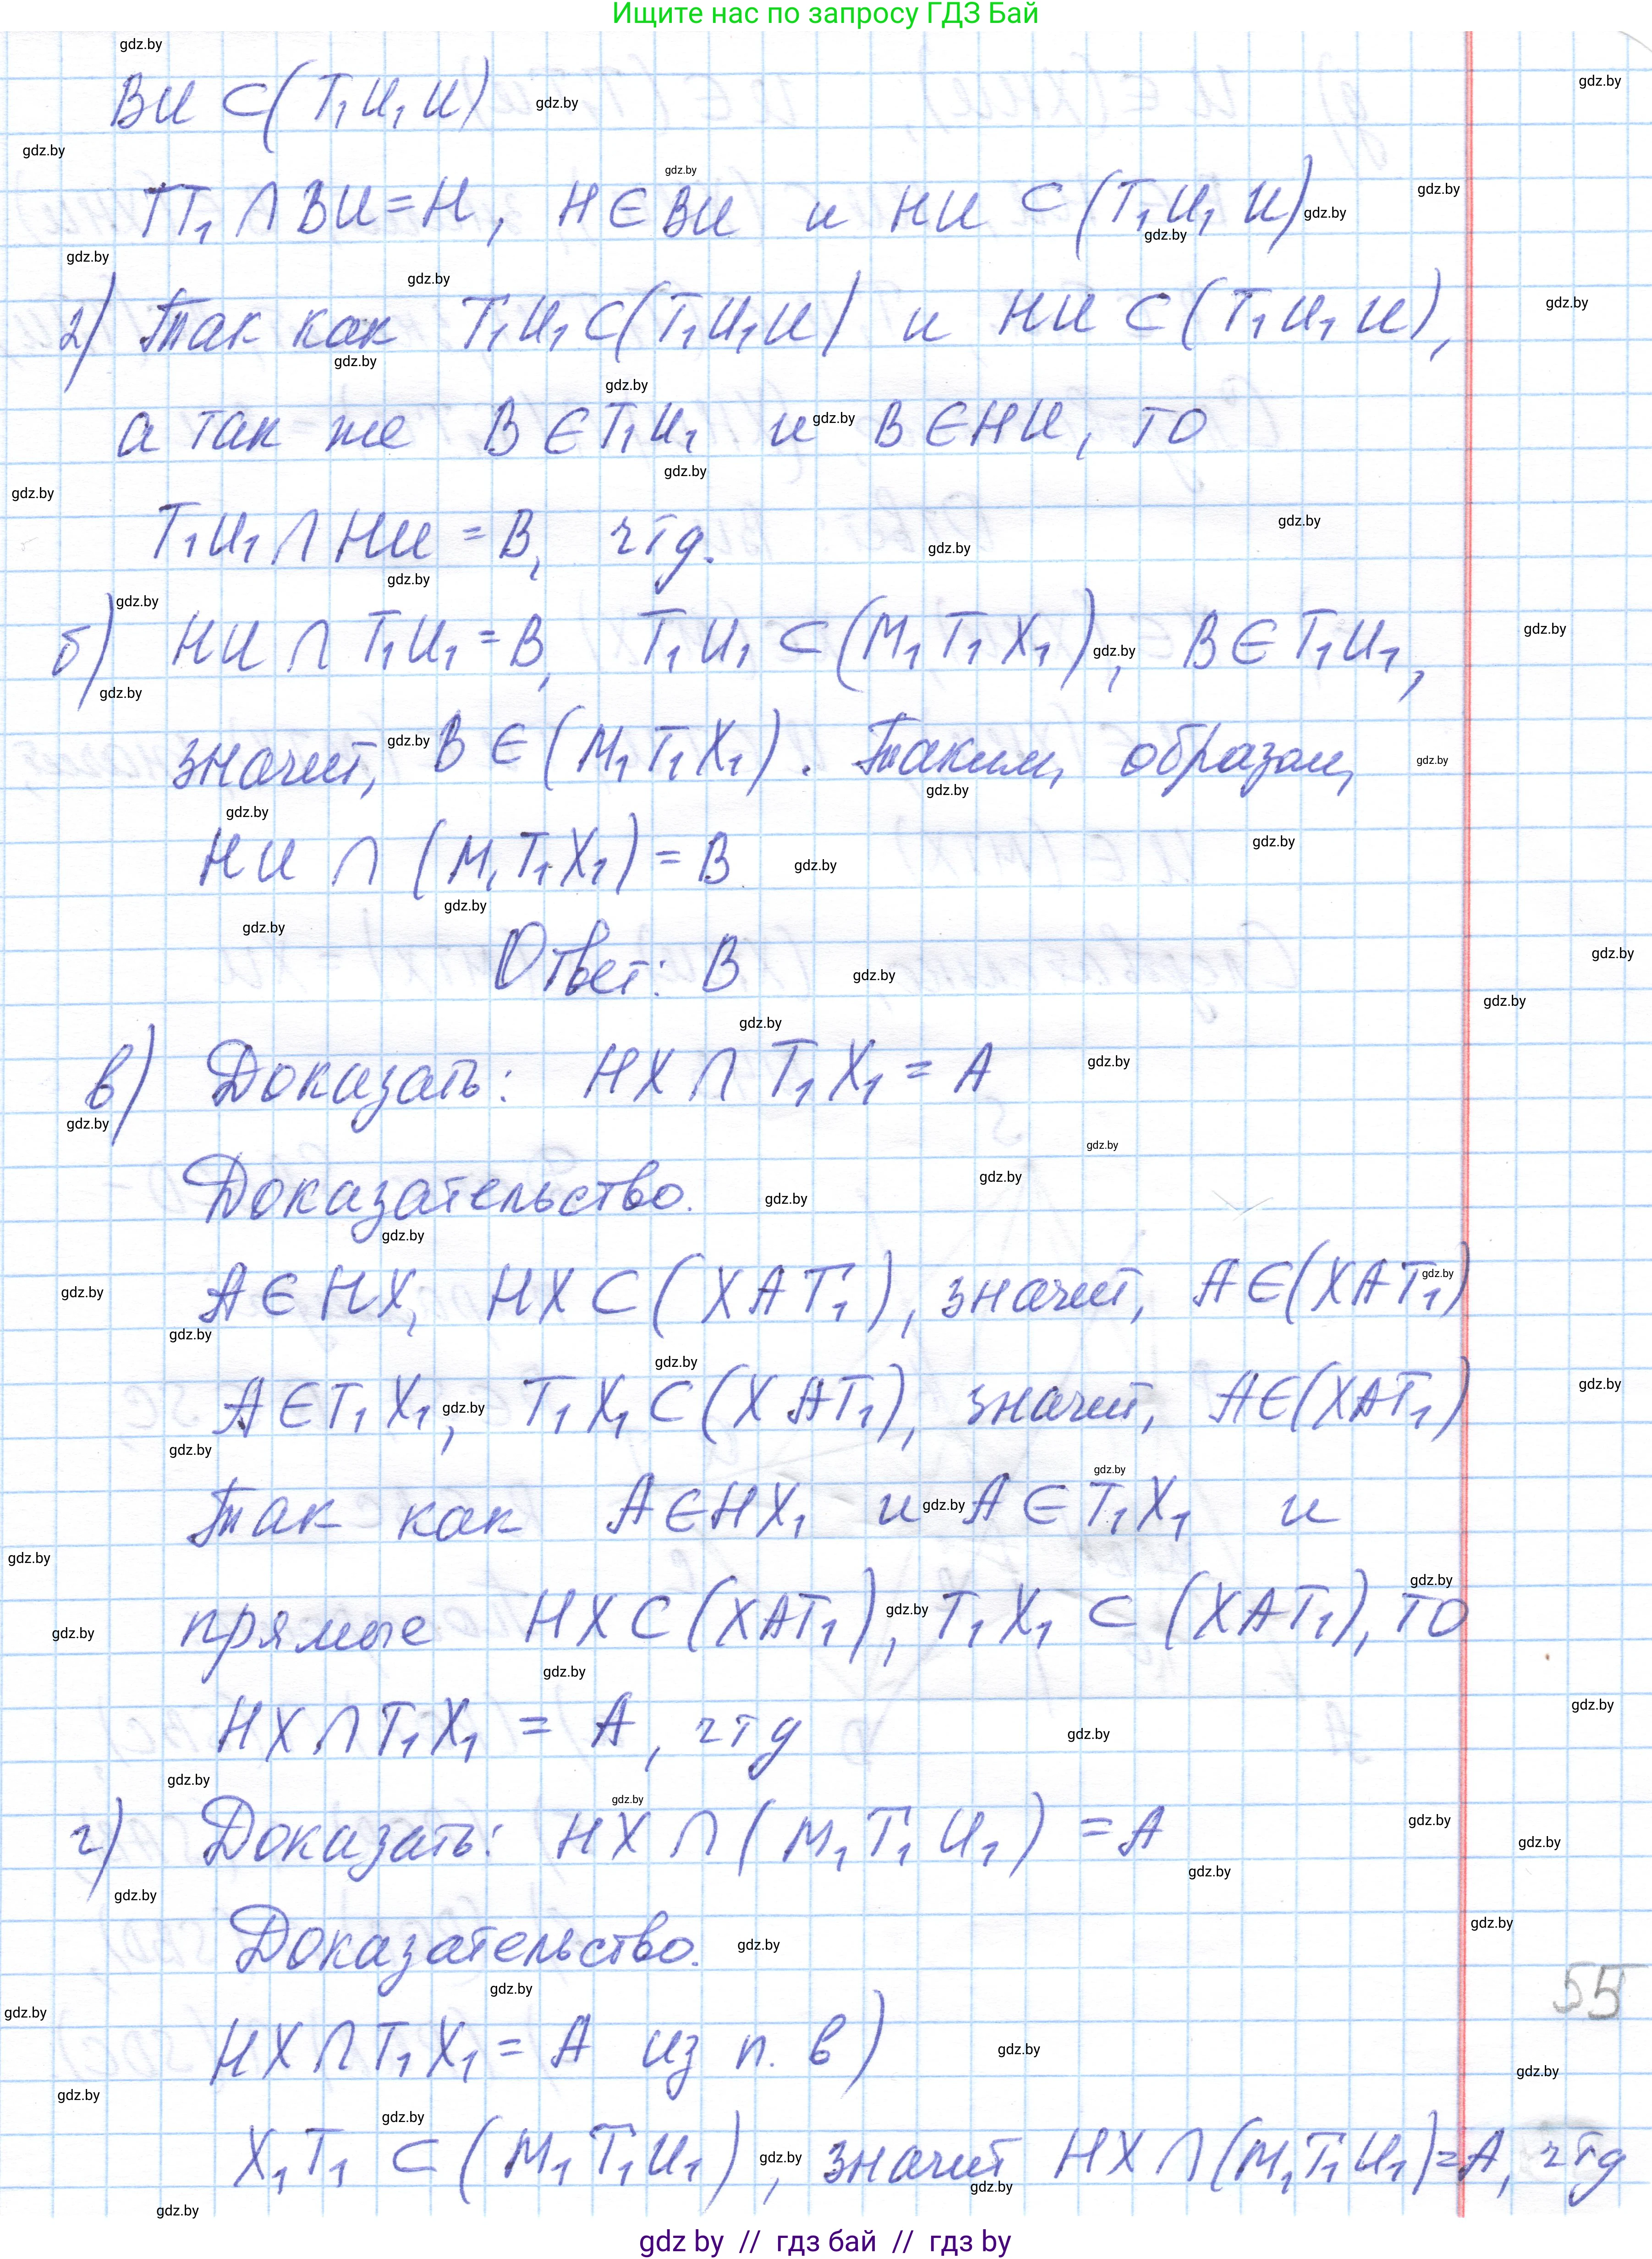 Ищите нас по запросу ГДЗ Бай
ВИ ⊂ (Т₁И₁И)
ТТ₁ ∩ ВИ = Н, Н ∈ ВИ и НИ ⊂ (Т₁И₁И)
2) Так как Т₁И₁ ⊂ (Т₁И₁И) и НИ ⊂ (Т₁И₁И),
а так же В ∈ Т₁И₁ и В ∈ НИ, то
Т₁И₁ ∩ НИ = В, чтд.
б) НИ ∩ Т₁И₁ = В, Т₁И₁ ⊂ (М₁Т₁Х₁), В ∈ Т₁И₁,
значит, В ∈ (М₁Т₁Х₁). Таким образом,
НИ ∩ (М₁Т₁Х₁) = В
Ответ: В
в) Доказать: НХ ∩ Т₁Х₁ = А
Доказательство.
А ∈ НХ, НХ ⊂ (ХАТ₁), значит, А ∈ (ХАТ₁)
А ∈ Т₁Х₁, Т₁Х₁ ⊂ (ХАТ₁), значит, А ∈ (ХАТ₁)
Так как А ∈ НХ₁ и А ∈ Т₁Х₁ и
прямые НХ ⊂ (ХАТ₁), Т₁Х₁ ⊂ (ХАТ₁), то
НХ ∩ Т₁Х₁ = А, чтд
г) Доказать: НХ ∩ (М₁Т₁И₁) = А
Доказательство.
55
НХ ∩ Т₁Х₁ = А из п. в)
Х₁Т₁ ⊂ (М₁Т₁И₁), значит НХ ∩ (М₁Т₁И₁) = А, чтд
gdz by // гдз бай // гдз by